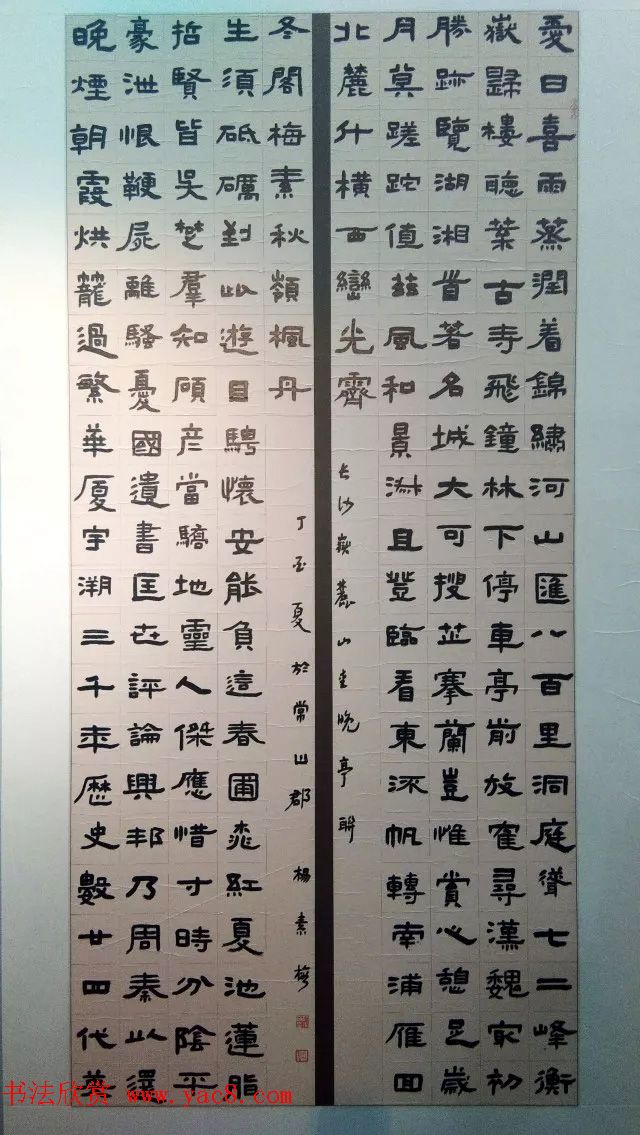 愛日喜雨蒸潤着錦繡河山匯八百里洞庭聳七二峰衡
嶽歸樓聽葉古寺飛鐘林下停車亭前放隺尋漢魏家初
勝跡覽湖湘首著名城大可搜芷搴蘭豈惟賞心憩足歲
月莫蹉跎值茲風和景淑且登臨看東流帆轉南浦雁回
北麓什橫西巒光霽
長沙嶽麓山愛晚亭聯
晚煙朝霞烘籠過繁華厦宇溯三千年歷史數廿四代英
豪泄恨鞭屍離騷憂國遺書匡世評論興邦乃周秦以還
哲賢皆吳楚羣知頎彦當驕地靈人傑應惜寸時分陰平
生須砥礪對此遊目騁懷安能負這春圃桃紅夏池蓮脂
冬閣梅素秋嶺楓丹
丁酉夏於常山郡 楊素梅
书法欣赏 www.yac8.com